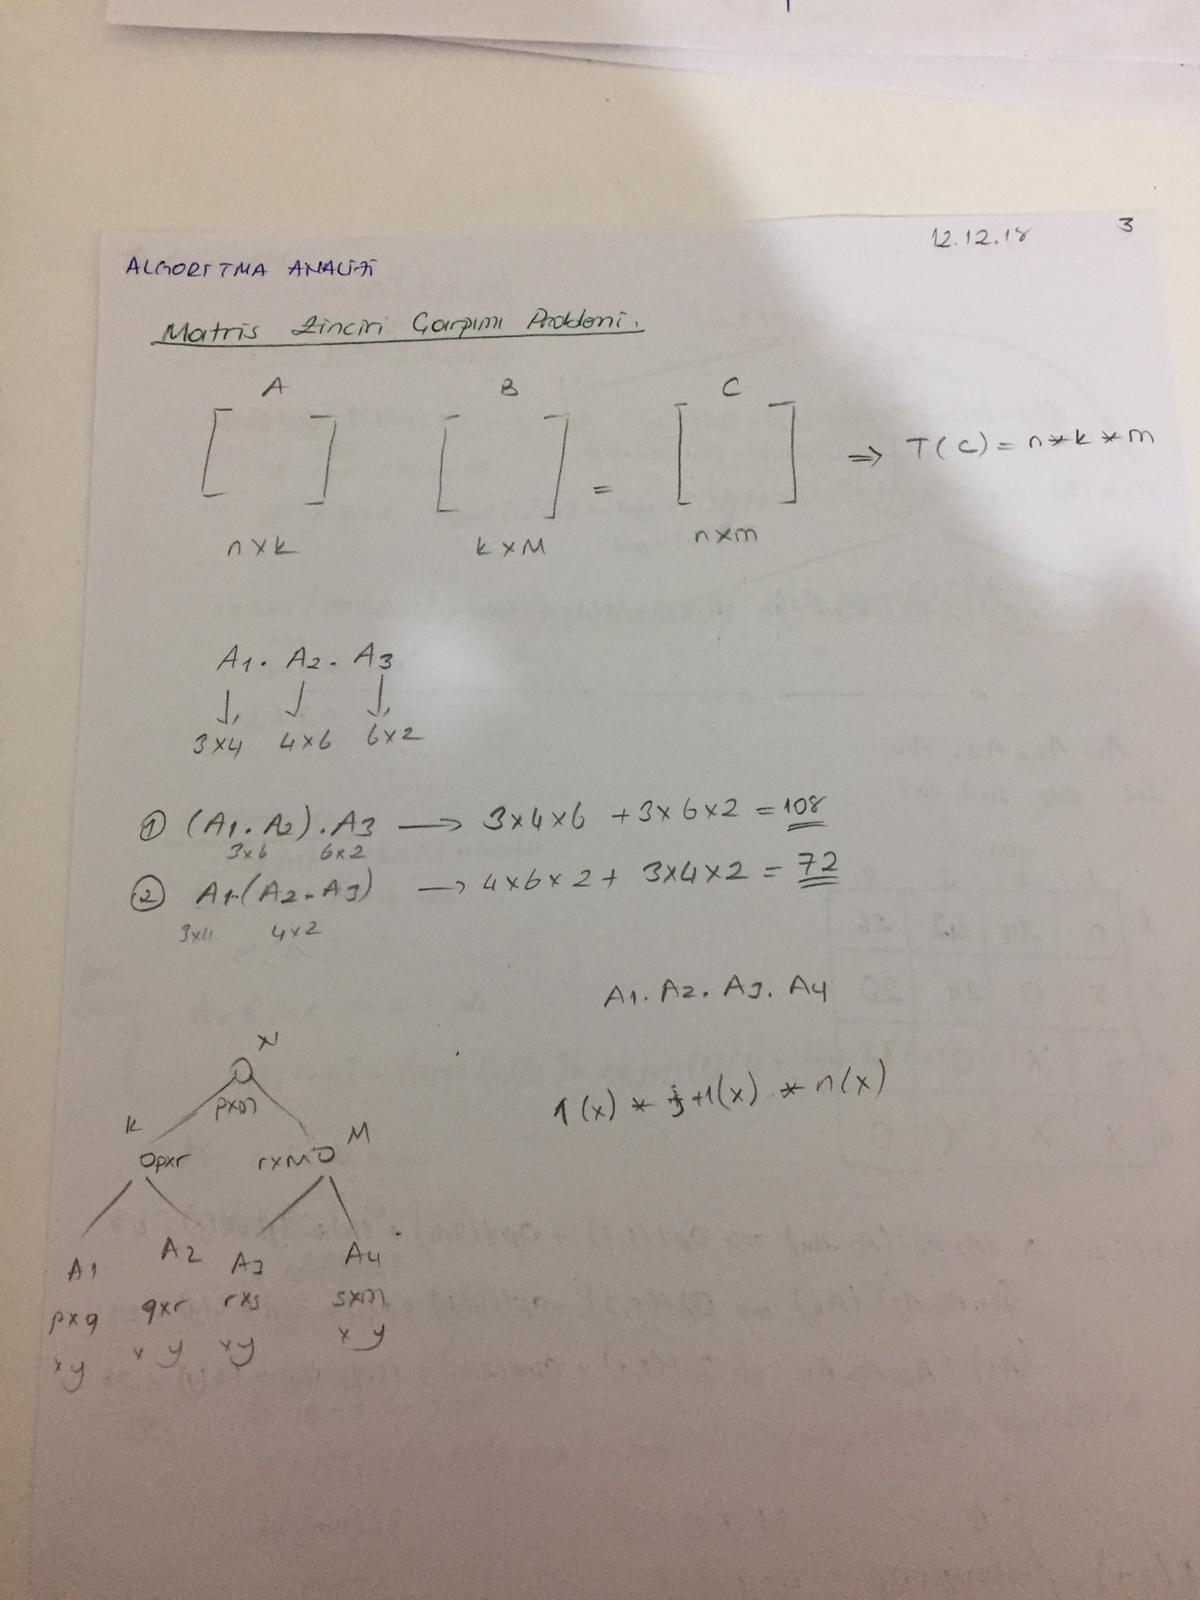 12.12.18 3
ALGORİTMA ANALİZİ
Matris Zinciri Çarpımı Problemi.
A B C
= ⇒ T(C) = n*k*m
nxk kxM nxm
A1. A2. A3
3x4 4x6 6x2
① (A1.A2).A3 → 3x4x6 + 3x6x2 = 108
3x6 6x2
② A1.(A2.A3) → 4x6x2 + 3x4x2 = 72
3x4 4x2
A1. A2. A3. A4
N
pxm
1(x) * j+1(x) * n(x)
K M
pxr rxm
A1 A2 A3 A4
pxq qxr rxs sxm
x y x y x y x y